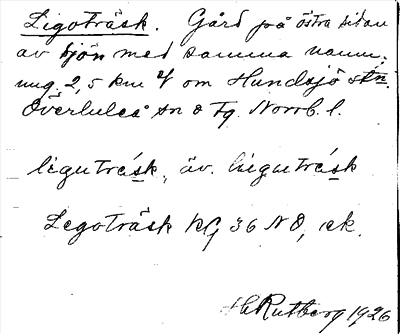 Ligoträsk. Gård på östra sidan
av sjön med samma namn,
ung. 2,5 km V om Hundsjö stn.
Överluleå sn o tg. Norrb. l.
ligutrésk, äv. liegutrésk
Legoträsk KG 36 NO, ek.
HRutberg 1926